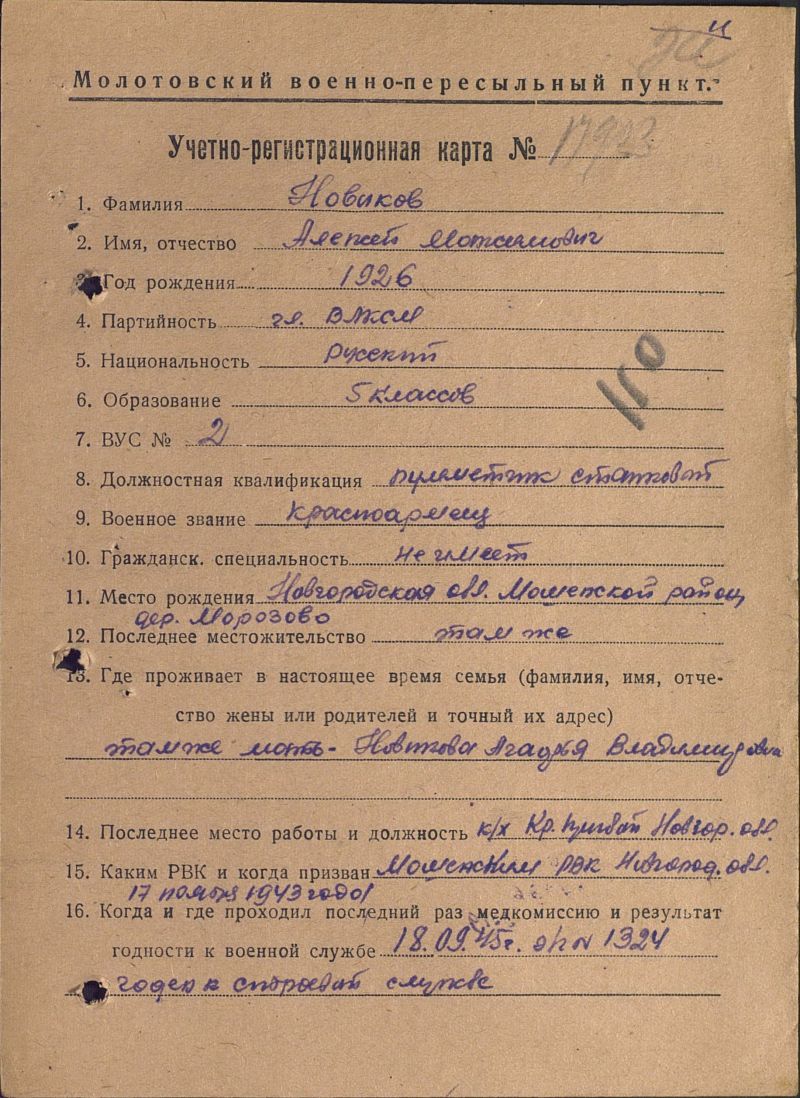 11
Молотовский военно-пересыльный пункт.
Учетно-регистрационная карта №
1. Фамилия Новиков
2. Имя, отчество Алексей
3. Год рождения 1926
4. Партийность чл. ВЛКСМ
5. Национальность Русский
6. Образование 5 классов
7. ВУС № 2
8. Должностная квалификация пулиметчик станковый
9. Военное звание Красноармеец
10. Гражданск. специальность не имеет
11. Место рождения Новгородская обл. район
дер. Морозово
12. Последнее местожительство там же
13. Где проживает в настоящее время семья (фамилия, имя, отче-
ство жены или родителей и точный их адрес)
там же мать - Новикова Владимировна
14. Последнее место работы и должность к/х Кр. Новгор. обл.
15. Каким РВК и когда призван РВК Новгород. обл.
17 ноября 1943 года
16. Когда и где проходил последний раз медкомиссию и результат
годности к военной службе 18.09.45г. 1324
годен к строевой службе
110